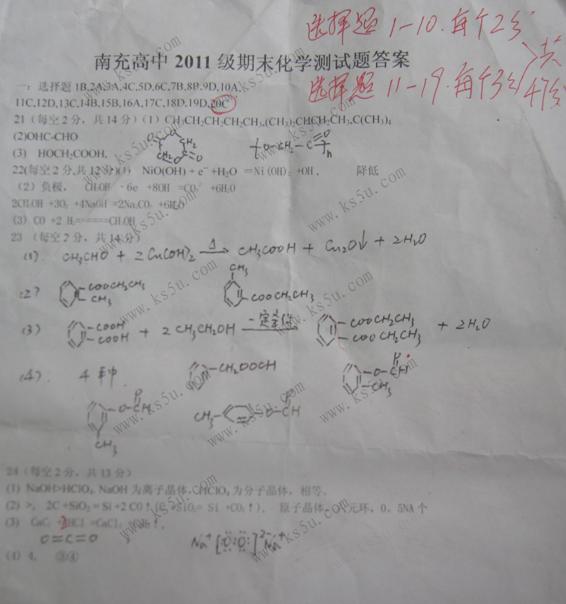 选择题 1-10.每个2分
南充高中 2011 级期末化学测试题答案
共
一：选择题 1B,2A,3A,4C,5D,6C,7B,8B,9D,10A,
选择题 11-19.每个3分
47分
11C,12D,13C,14B,15B,16A,17C,18D,19D,20C
21（每空2分，共14分）(1) CH3CH2CH2CH2CH3,(CH3)2CHCH2CH3,C(CH3)4
(2)OHC-CHO
(3) HOCH2COOH,
22(每空2分,共12分)(1) NiO(OH) + e⁻ +H2O =Ni(OH)2 +OH⁻, 降低
（2）负极, CH3OH - 6e⁻ +8OH⁻ =CO3²⁻ +6H2O
2CH3OH +3O2 +4NaOH =2Na2CO3 +6H2O
(3) CO +2 H2=====CH3OH
23 （每空2分，共14分）
(1). CH3CHO + 2Cu(OH)2 △→ CH3COOH + Cu2O↓ + 2H2O
(2) COOCH2CH3 CH3 CH3 COOCH2CH3
(3) COOH COOH + 2CH3CH2OH 一定条件→ COOCH2CH3 COOCH2CH3 + 2H2O
(4). 4种 CH2OOCH O-CH O CH3
O-CH O CH3 CH3 O-CH O
24（每空2分，共13分）
(1) NaOH>HClO4, NaOH 为离子晶体, HClO4 为分子晶体，相等。
(2) >, 2C +SiO2 = Si +2 CO↑,
O=C=O Na⁺[:O:O:]²⁻Na⁺
(4) 4, ③④
www.ks5u.com